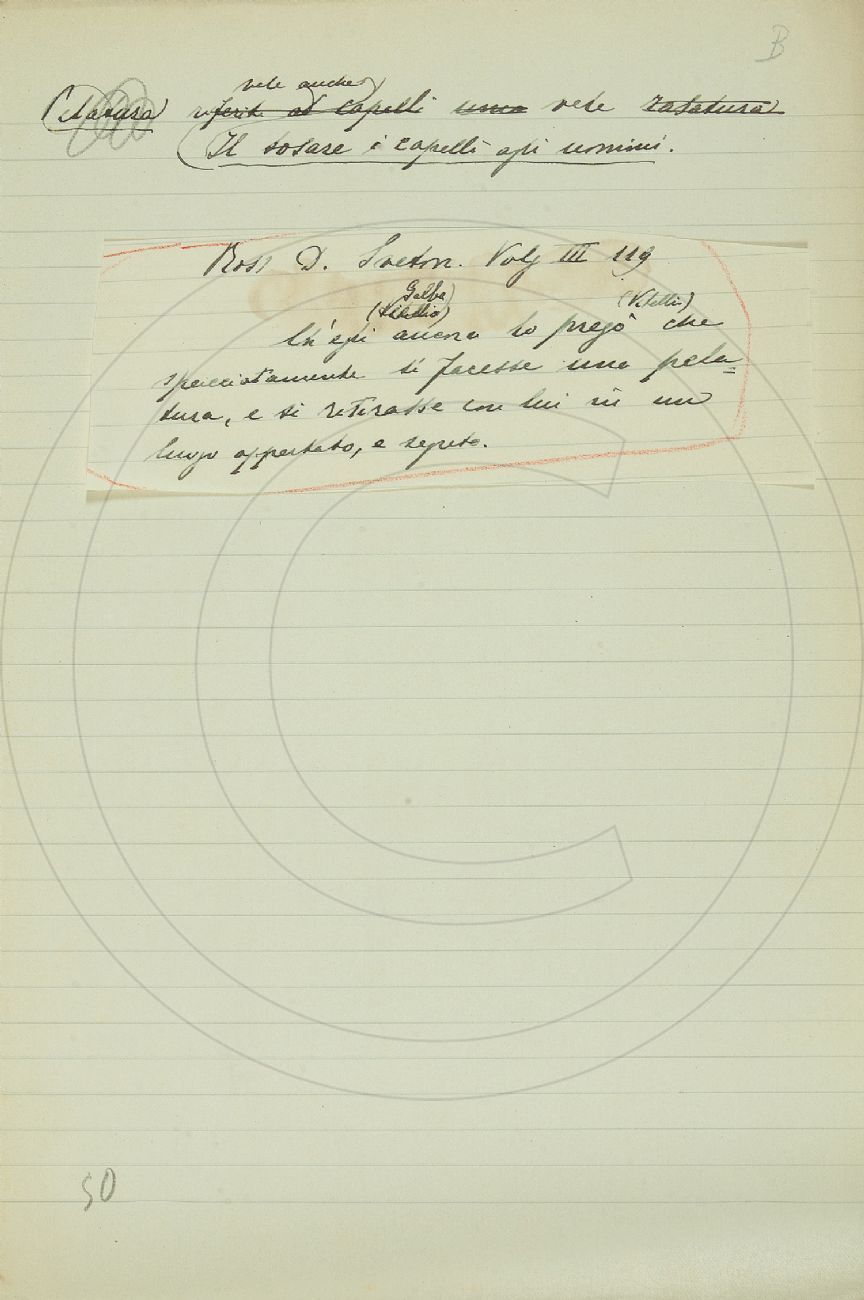 B
vede anche
Pelatura riferito ai capelli vede rasatura
Il tosare i capelli agli uomini.
Ross D. Sveton. Volg III 119
Galba (Vitellio) (Vitellio)
Ch'egli ancora lo pregò che
spacciatamente si facesse una pela=
tura, e si retirasse con lui in un
luogo appartato, e segreto.
50